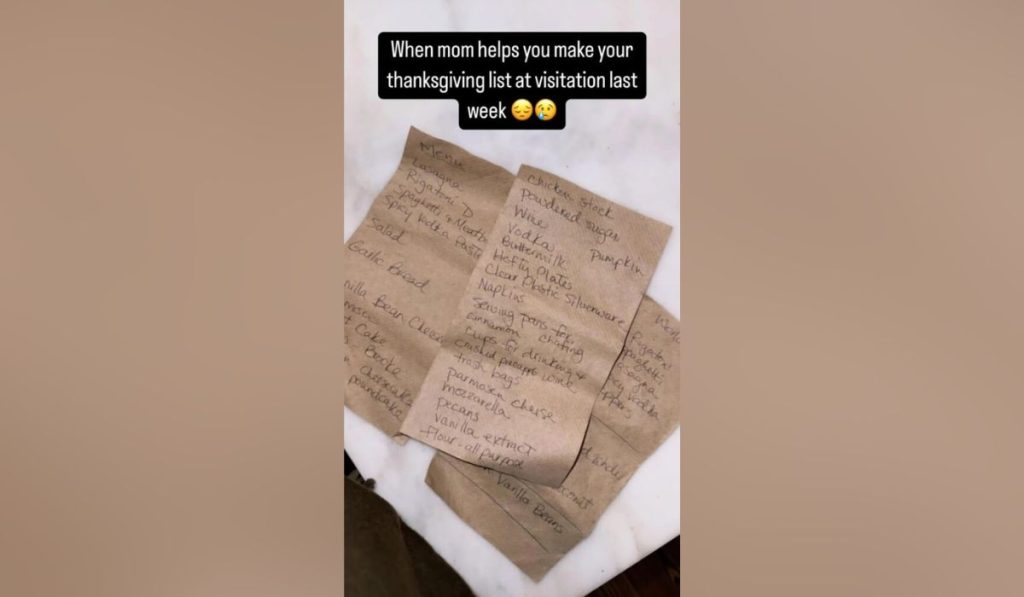 When mom helps you make your
thanksgiving list at visitation last
week 😔😢
Menu
Lasagna
Rigatoni D
Spaghetti + Meatb
Spicy Vodka Pasta
Salad
Garlic Bread
nilla Bean Cheese
Cake
Cheesecake
poundcake
chicken stock
Powdered sugar
Wine
Vodka
Pumpkin
Buttermilk
Hefty Plates
Clear Plastic Silverware
Napkins
Serving pans for
cinnamon chafing
cups for drinking +
wine
trash bags
parmasen cheese
mozzarella
pecans
vanilla extract
Flour - all purpose
Rigatoni
spaghetti
agna
Vodka
Vanilla Beans